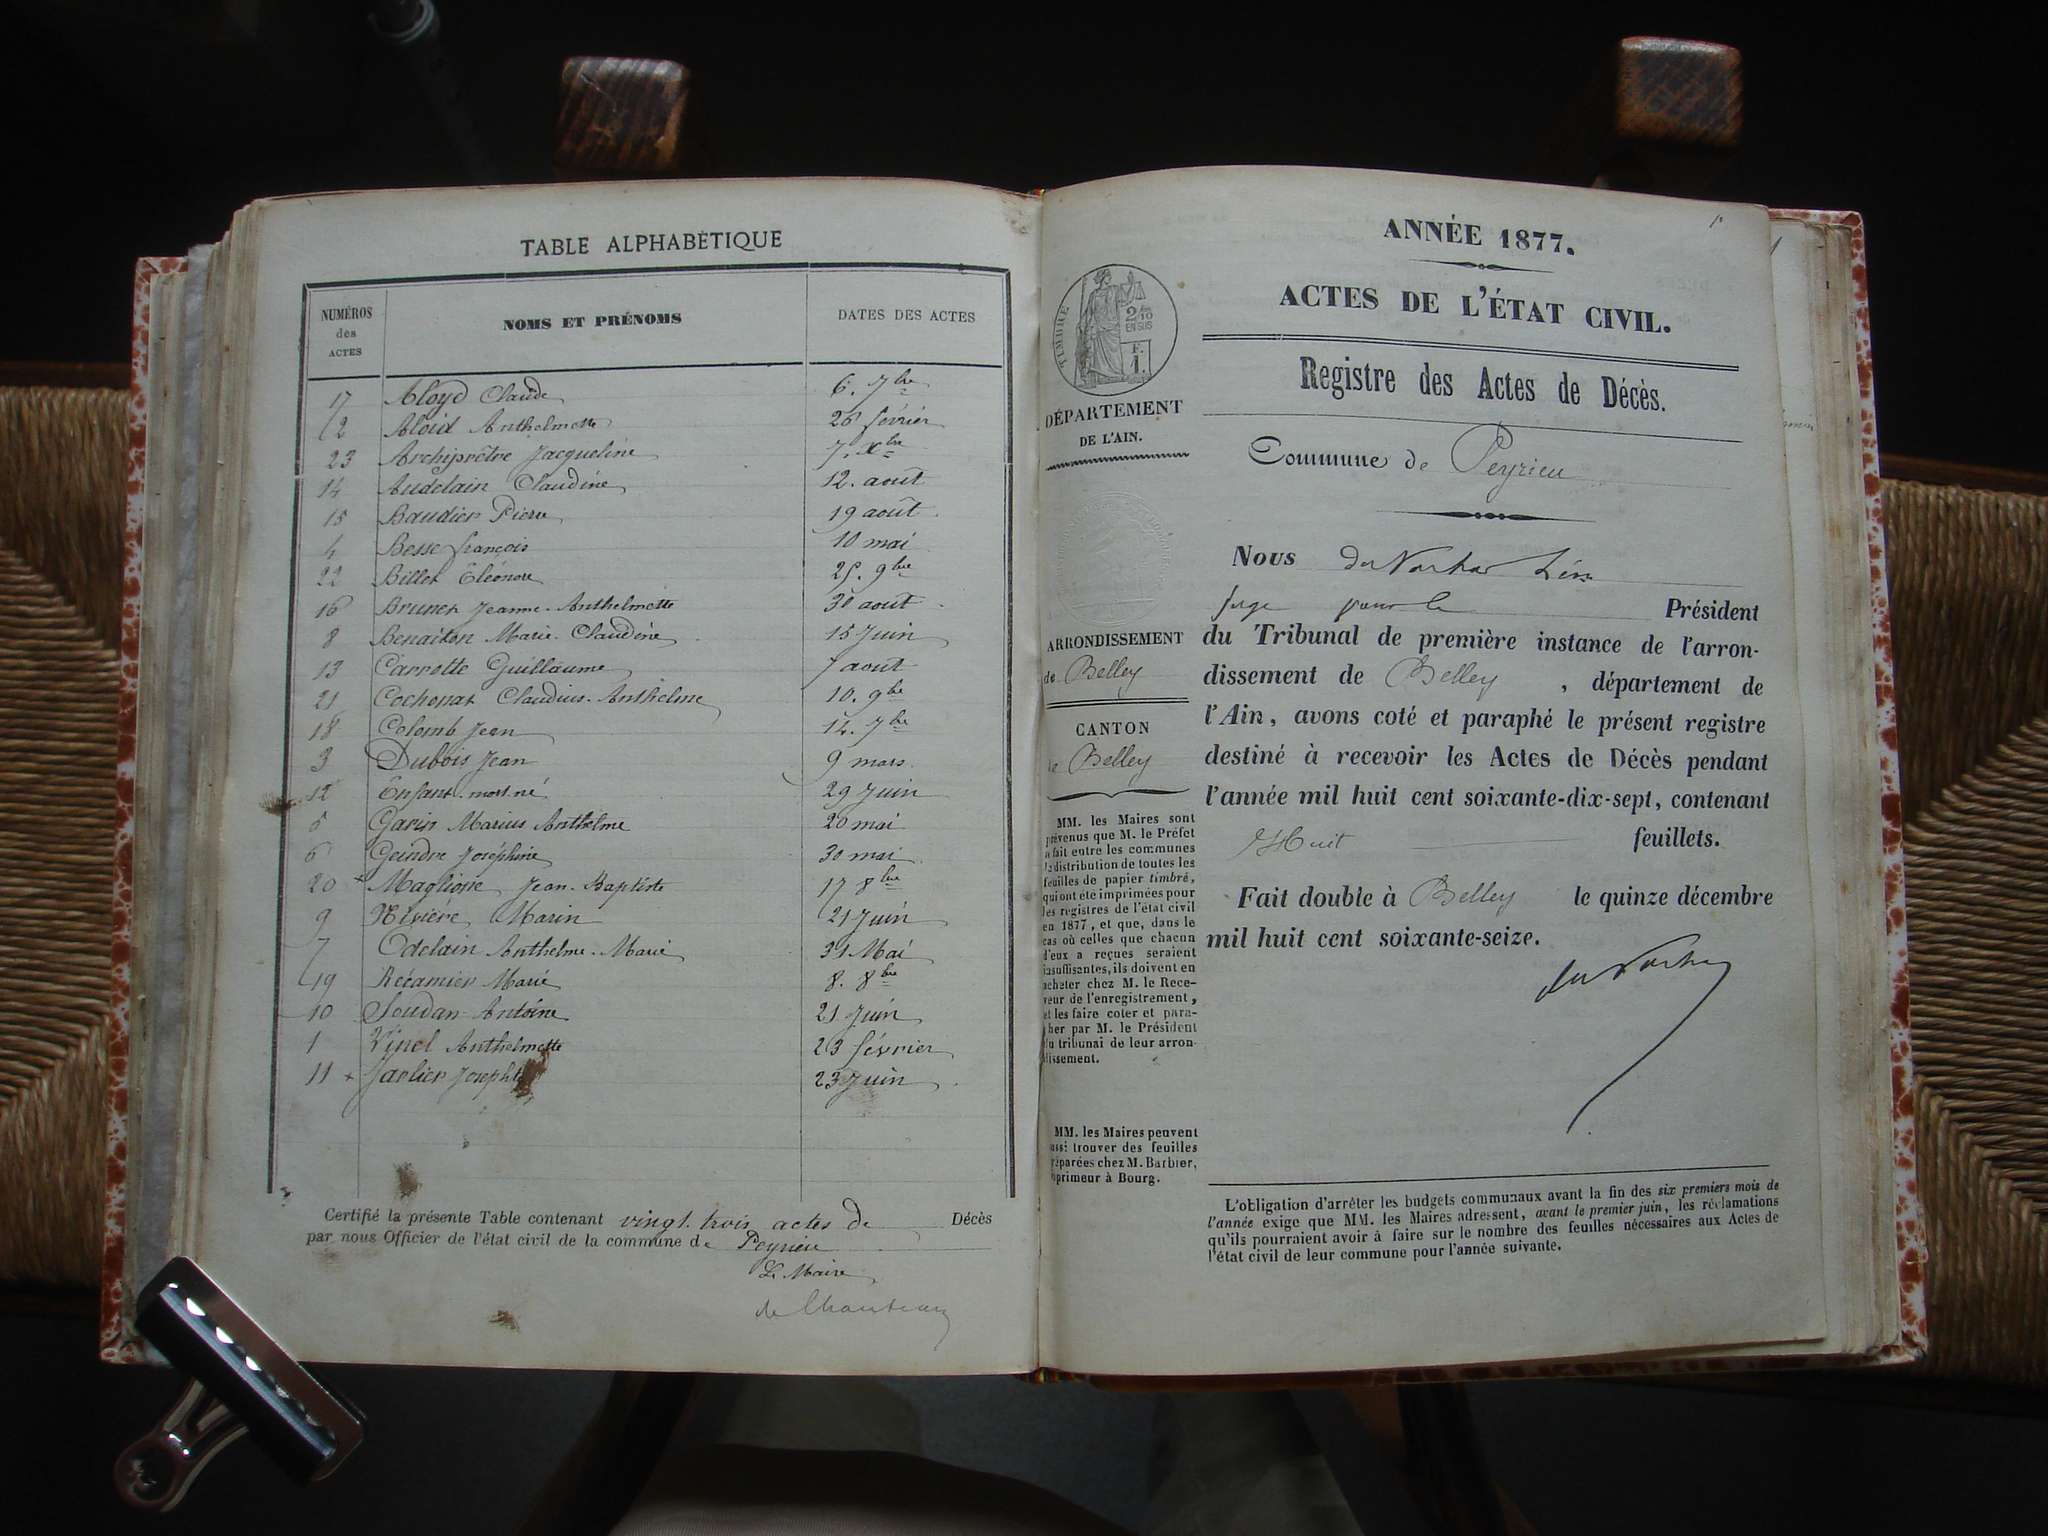 TABLE ALPHABÉTIQUE
NUMÉROS des ACTES
NOMS ET PRÉNOMS
DATES DES ACTES
17 Aloyd Claude 6. 7bre
2 Aloid Anthelmette 26 février
23 Archiprêtre Jacqueline 7. Xbre
14 Audelain Claudine 12. aout
15 Baudier Pierre 19 août
4 Besse françois 10 mai
22 Billet Eléonore 25. 9bre
16 Brunet Jeanne-Anthelmette 30 août
8 Benaiton Marie-Claudine 15 Juin
13 Carrotte Guillaume 7 aout
21 Cochonat Claudius-Anthelme 10. 9bre
18 Colomb Jean 14. 7bre
3 Dubois Jean 9 mars
12 Enfant mort né 29 Juin
5 Garin Marius Anthelme 20 mai
6 Geindre Joséphine 30 mai
20 + Jean-Baptiste 17 8bre
9 Marin 21 Juin
7 Odelain Anthelme-Marie 31 Mai
19 Récamier Marie 8. 8bre
10 Soudan Antoine 21 Juin
1 Vinel Anthelmette 23 février
11 + Jarlier 23 Juin
Certifié la présente Table contenant vingt trois actes de Décès
par nous Officier de l'état civil de la commune de Peyrieu
Le Maire
ANNÉE 1877.
ACTES DE L'ÉTAT CIVIL.
Registre des Actes de Décès.
Commune de Peyrieu
Nous
Juge pour le Président
du Tribunal de première instance de l'arron-
dissement de Belley, département de
l'Ain, avons coté et paraphé le présent registre
destiné à recevoir les Actes de Décès pendant
l'année mil huit cent soixante-dix-sept, contenant
Huit feuillets.
Fait double à Belley le quinze décembre
mil huit cent soixante-seize.
L'obligation d'arrêter les budgets communaux avant la fin des six premiers mois de
l'année exige que MM. les Maires adressent, avant le premier juin, les réclamations
qu'ils pourraient avoir à faire sur le nombre des feuilles nécessaires aux Actes de
l'état civil de leur commune pour l'année suivante.
TIMBRE
2/10
EN SUS
F.
1.
DÉPARTEMENT
DE L'AIN.
ARRONDISSEMENT
de Belley
CANTON
de Belley
MM. les Maires sont
prévenus que M. le Préfet
a fait entre les communes
la distribution de toutes les
feuilles de papier timbré,
qui ont été imprimées pour
les registres de l'état civil
en 1877, et que, dans le
cas où celles que chacun
d'eux a reçues seraient
insuffisantes, ils doivent en
acheter chez M. le Rece-
veur de l'enregistrement,
et les faire coter et para-
pher par M. le Président
du tribunal de leur arron-
dissement.
MM. les Maires peuvent
aussi trouver des feuilles
préparées chez M. Barbier,
imprimeur à Bourg.